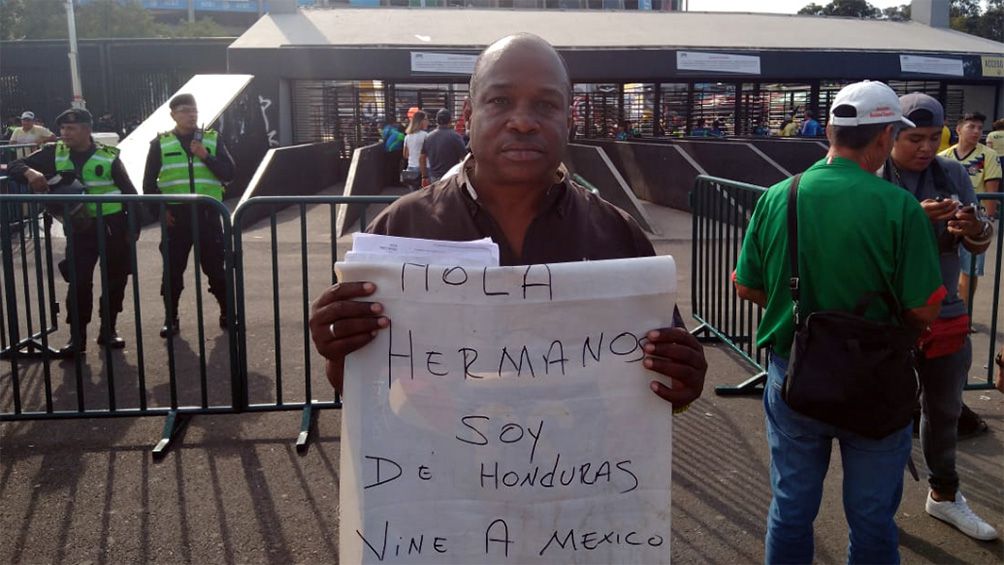 HOLA
HERMANOS
SOY
DE HONDURAS
VINE A MEXICO
ACCESO